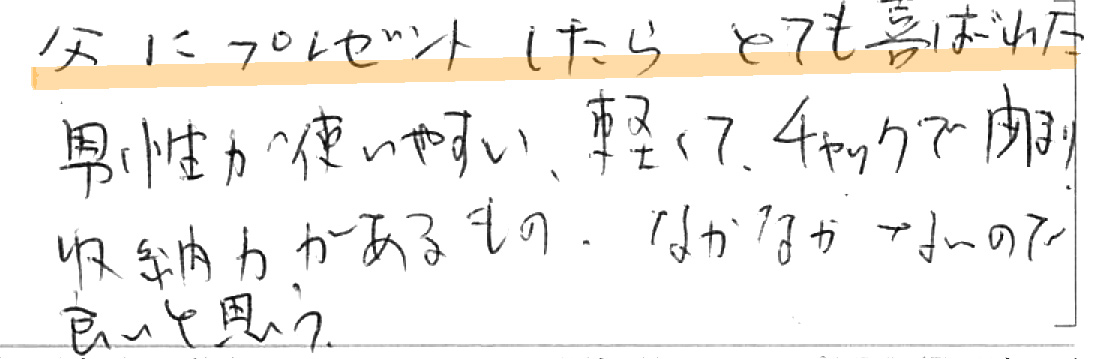 父にプレゼントしたら とても喜ばれた
男性が使いやすい、軽くて、チャックで閉まり、
収納力があるもの。なかなかないので
良いと思う。